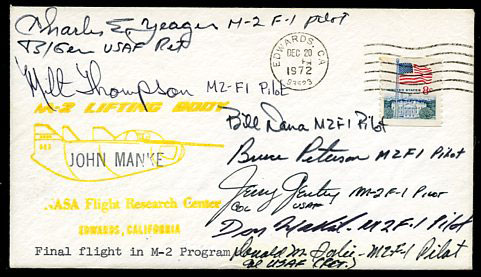 Charles E. Yeager M-2 F-1 pilot
B/Gen USAF Ret
Milt Thompson M2-F1 Pilot
EDWARDS, CA
DEC 20
1972
93523
8c
UNITED STATES
M-2 LIFTING BODY
JOHN MANKE
NASA Flight Research Center
EDWARDS, CALIFORNIA
Final flight in M-2 Program
Bill Dana M2F1 Pilot
Bruce Peterson M2F1 Pilot
Jerry Gentry M-2F-1 Pilot
COL USAF
Don Mallick - M2F-1 Pilot
Donald M. Sorlie - M2F-1 Pilot
Col USAF (Ret.)